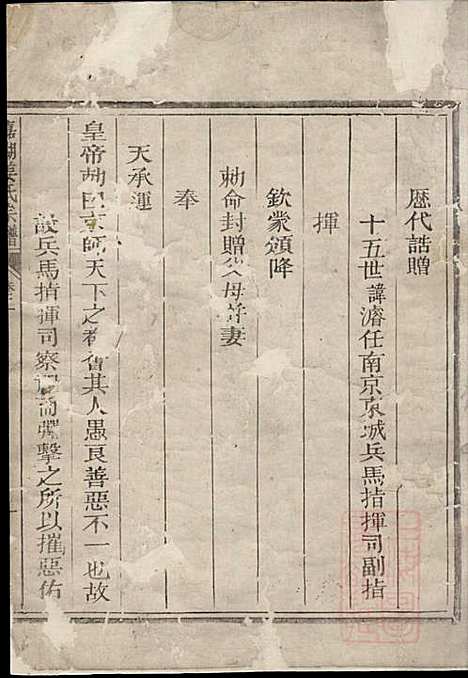 歴代誥贈
十五世諱濬任南京東城兵馬指揮司副指
揮
欽蒙頒降
勅命封贈父母并妻
奉
天承運
皇帝勅曰京師天下之都會其人愚良善惡不一也故
設兵馬指揮司察而彈擊之所以摧惡佑
氏宗譜